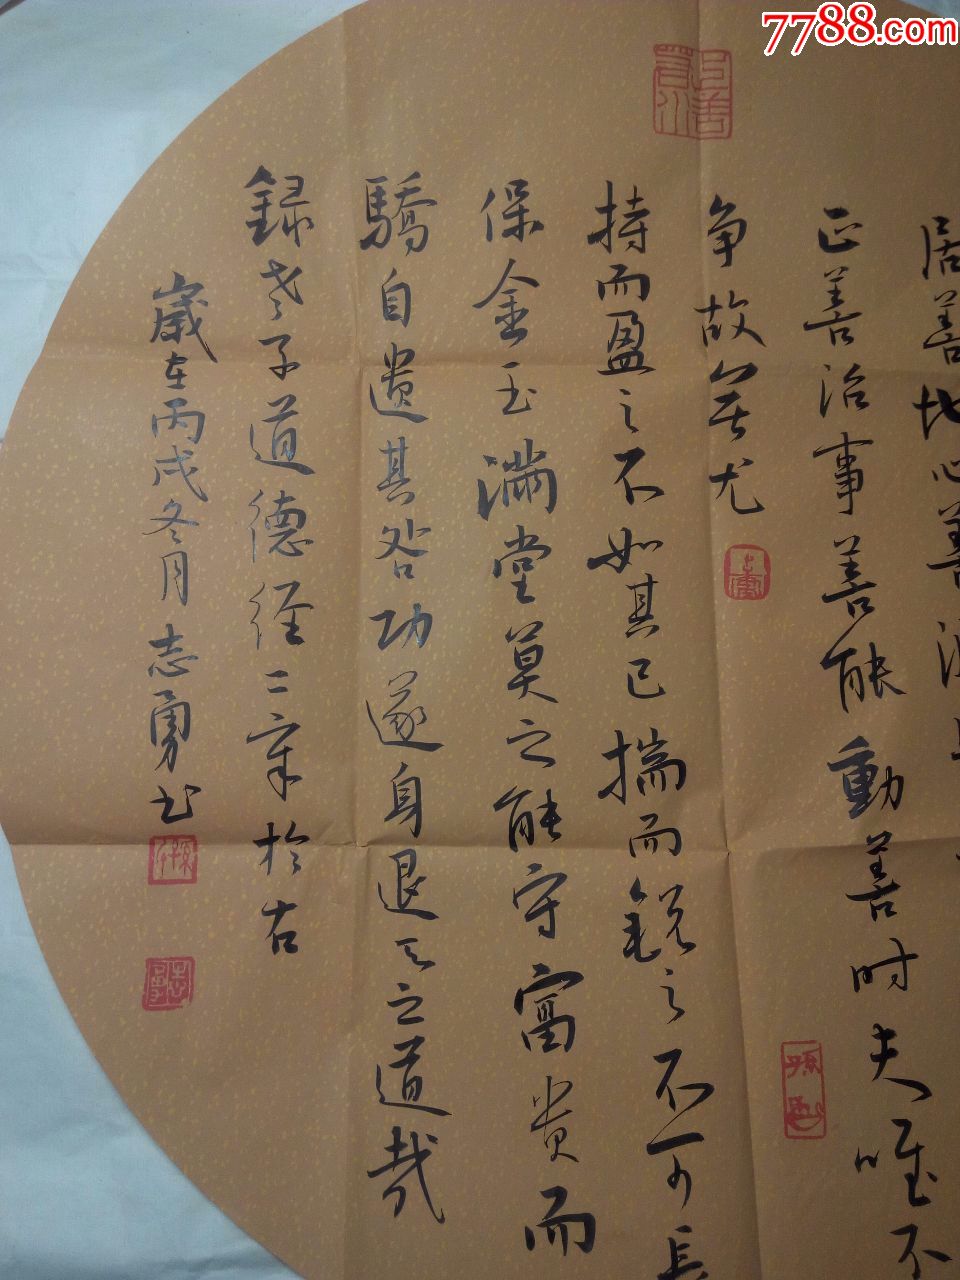 7788.com
上善若水
居善地心善渊
正善治事善能動善时夫唯不
争故無尤
持而盈之不如其已揣而锐之不可長
保金玉滿堂莫之能守富贵而
驕自遗其咎功遂身退天之道哉
録老子道德经二章於右
歲在丙戌冬月志勇书
志勇